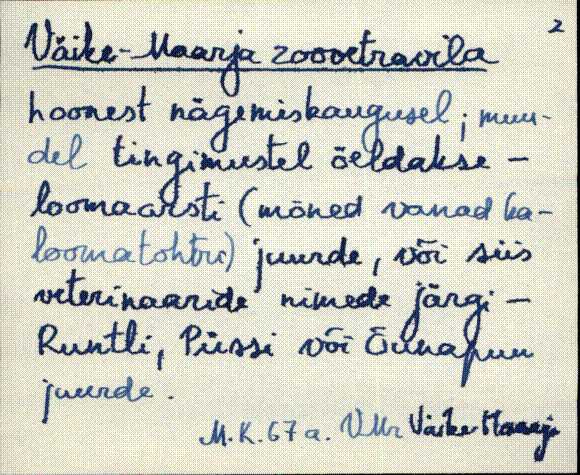 2
Väike-Maarja zoovetravila
hoonest nägemiskaugusel; muu-
del tingimustel öeldakse -
loomaarsti (mõned vanad ka -
loomatohtri) juurde, või siis
veterinaaride nimede järgi -
Runtli, Püssi või Õunapuu
juurde.
M.K. 67 a. VMr Väike Maarja